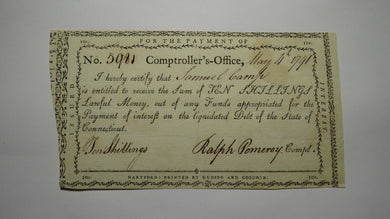 10s. FOR THE PAYMENT OF 10s.
No. 5981 Comptroller's-Office, May 4th 1791
I hereby certify that Samuel Camp
is entitled to receive the Sum of TEN SHILLINGS
Lawful Money, out of any Funds appropriated for the
Payment of interest on the liquidated Debt of the State of
Connecticut.
Ten Shillings Ralph Pomeroy Compt.
10s. HARTFORD: PRINTED BY HUDSON AND GOODWIN. 10s.
ISSUED